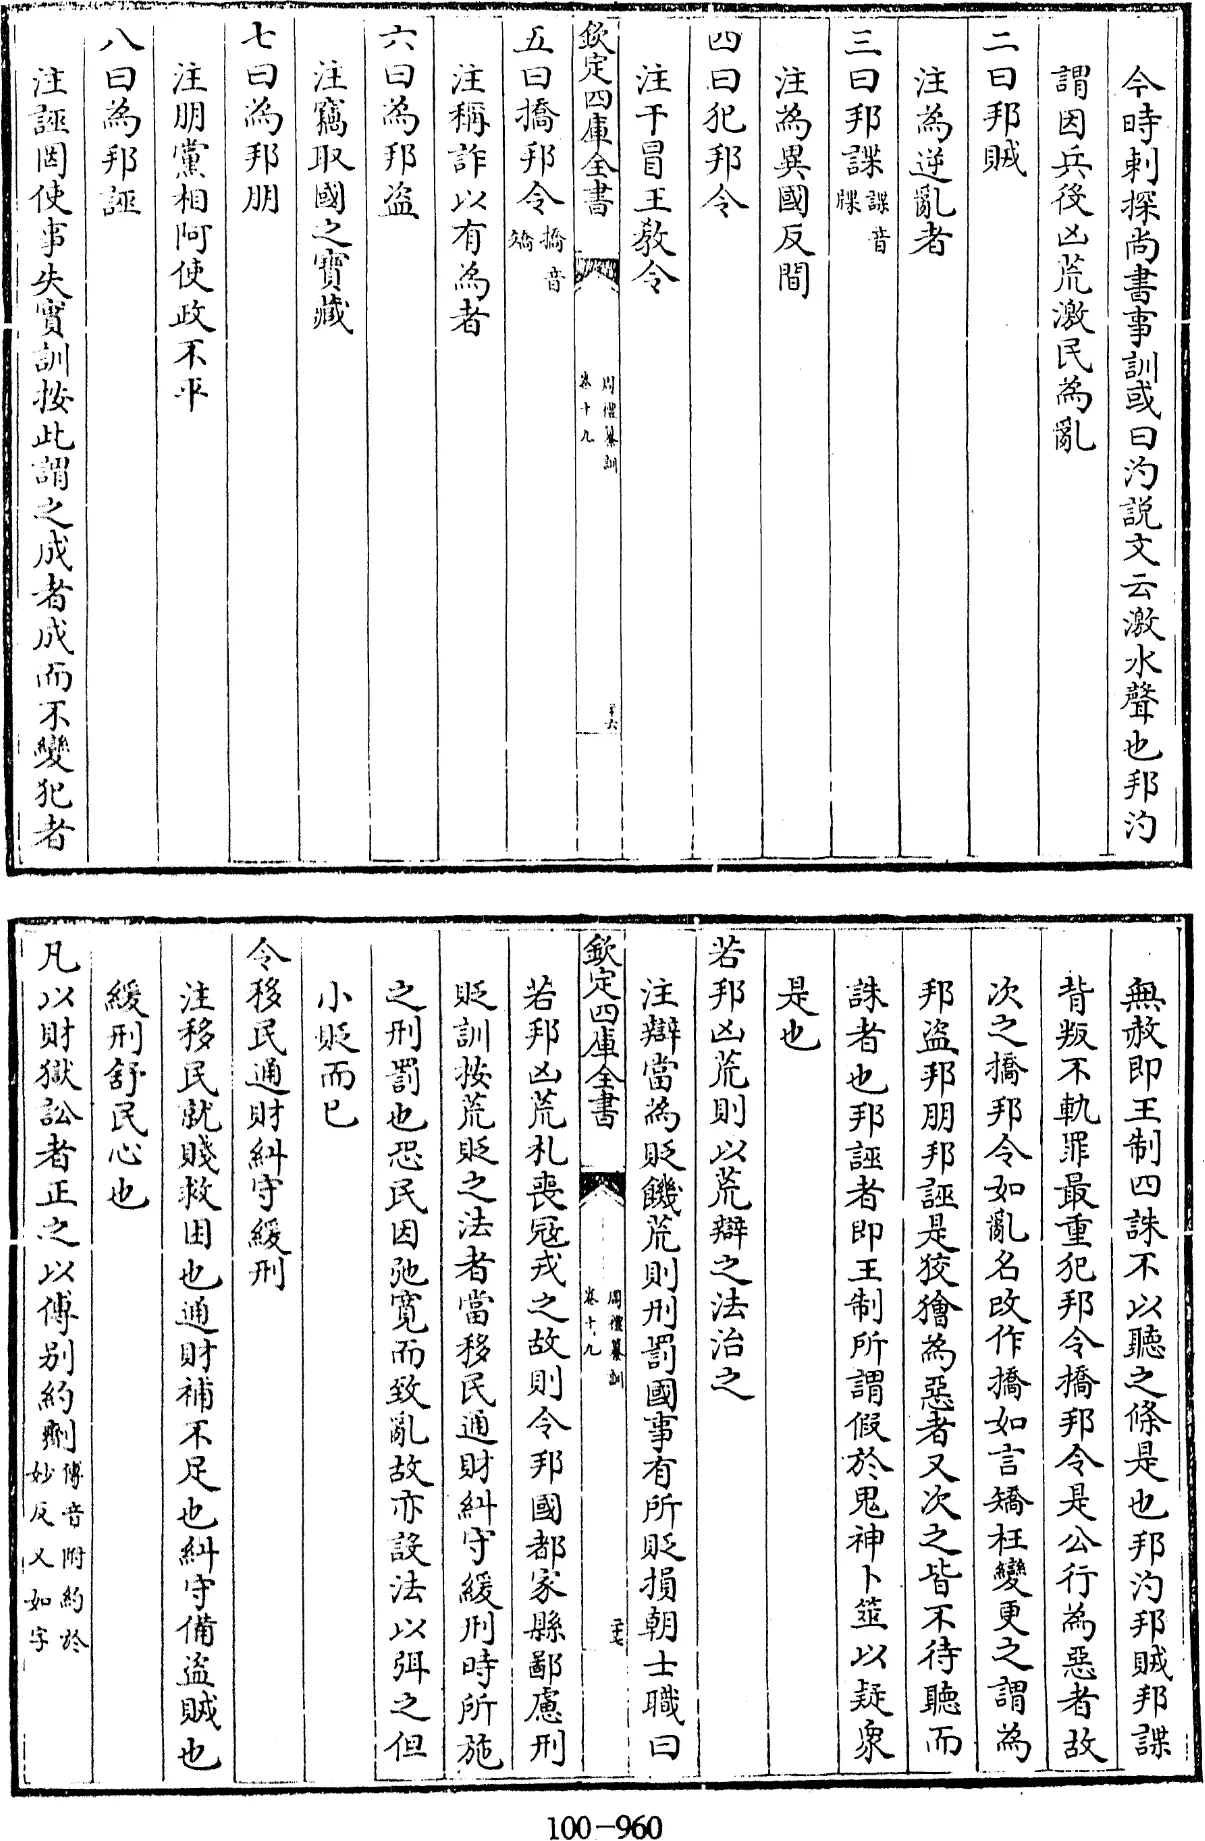 今時刺探尚書事訓或曰汋説文云激水聲也邦汋
謂因兵後凶荒激民為亂
二曰邦賊
注為逆亂者
三曰邦諜諜音牒
注為異國反間
四曰犯邦令
注干冒王教令
欽定四庫全書
周禮纂訓
卷十九
五曰撟邦令撟音矯
注稱詐以有為者
六曰為邦盗
注竊取國之寶藏
七曰為邦朋
注朋黨相阿使政不平
八曰為邦誣
注誣罔使事失實訓按此謂之成者成而不變犯者
無赦即王制四誅不以聽之條是也邦汋邦賊邦諜
背叛不軌罪最重犯邦令撟邦令是公行為惡者故
次之撟邦令如亂名改作撟如言矯枉變更之謂為
邦盗邦朋邦誣是狡獪為惡者又次之皆不待聽而
誅者也邦誣者即王制所謂假於鬼神卜筮以疑衆
是也
若邦凶荒則以荒辯之法治之
注辯當為貶饑荒則刑罰國事有所貶損朝士職曰
欽定四庫全書
周禮纂訓
卷十九
若邦凶荒札喪冦戎之故則令邦國都家縣鄙慮刑
貶訓按荒貶之法者當移民通財糾守緩刑時所施
之刑罰也恐民因弛寛而致亂故亦設法以弭之但
小貶而已
令移民通財糾守緩刑
注移民就賤救困也通財補不足也糾守備盗賊也
緩刑舒民心也
凡以財獄訟者正之以傅别約劑傅音附約於妙反又如字
100-960